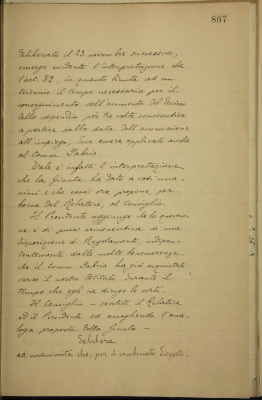 867
deliberato il 23 novembre successivo,
emerge evidente l'interpretazione che
l'art. 82, in quanto limita ad un
triennio il tempo necessario per il
conseguimento dell'aumento del decimo
dello stipendio, per tre volte consecutive
a partire dalla data dell'ammissione
all'impiego, deve essere applicato anche
al Comm. Fabris.
Tale è infatti l'interpretazione
che la Giunta ha dato a voti una-
nimi e che essa ora propone per
bocca del Relatore, al Consiglio.
Il Presidente aggiunge che la questio-
ne è di pura ermeneutica di una
disposizione di Regolamento, indipen-
dentemente dalle molte benemerenze
che il Comm. Fabris ha già acquistate
verso il nostro Istituto durante il
tempo che egli ne dirige le sorti.
Il Consiglio - sentiti il Relatore
ed il Presidente ed accogliendo l'ana-
loga proposta della Giunta -
Delibera
ad unanimità che, per il combinato disposto